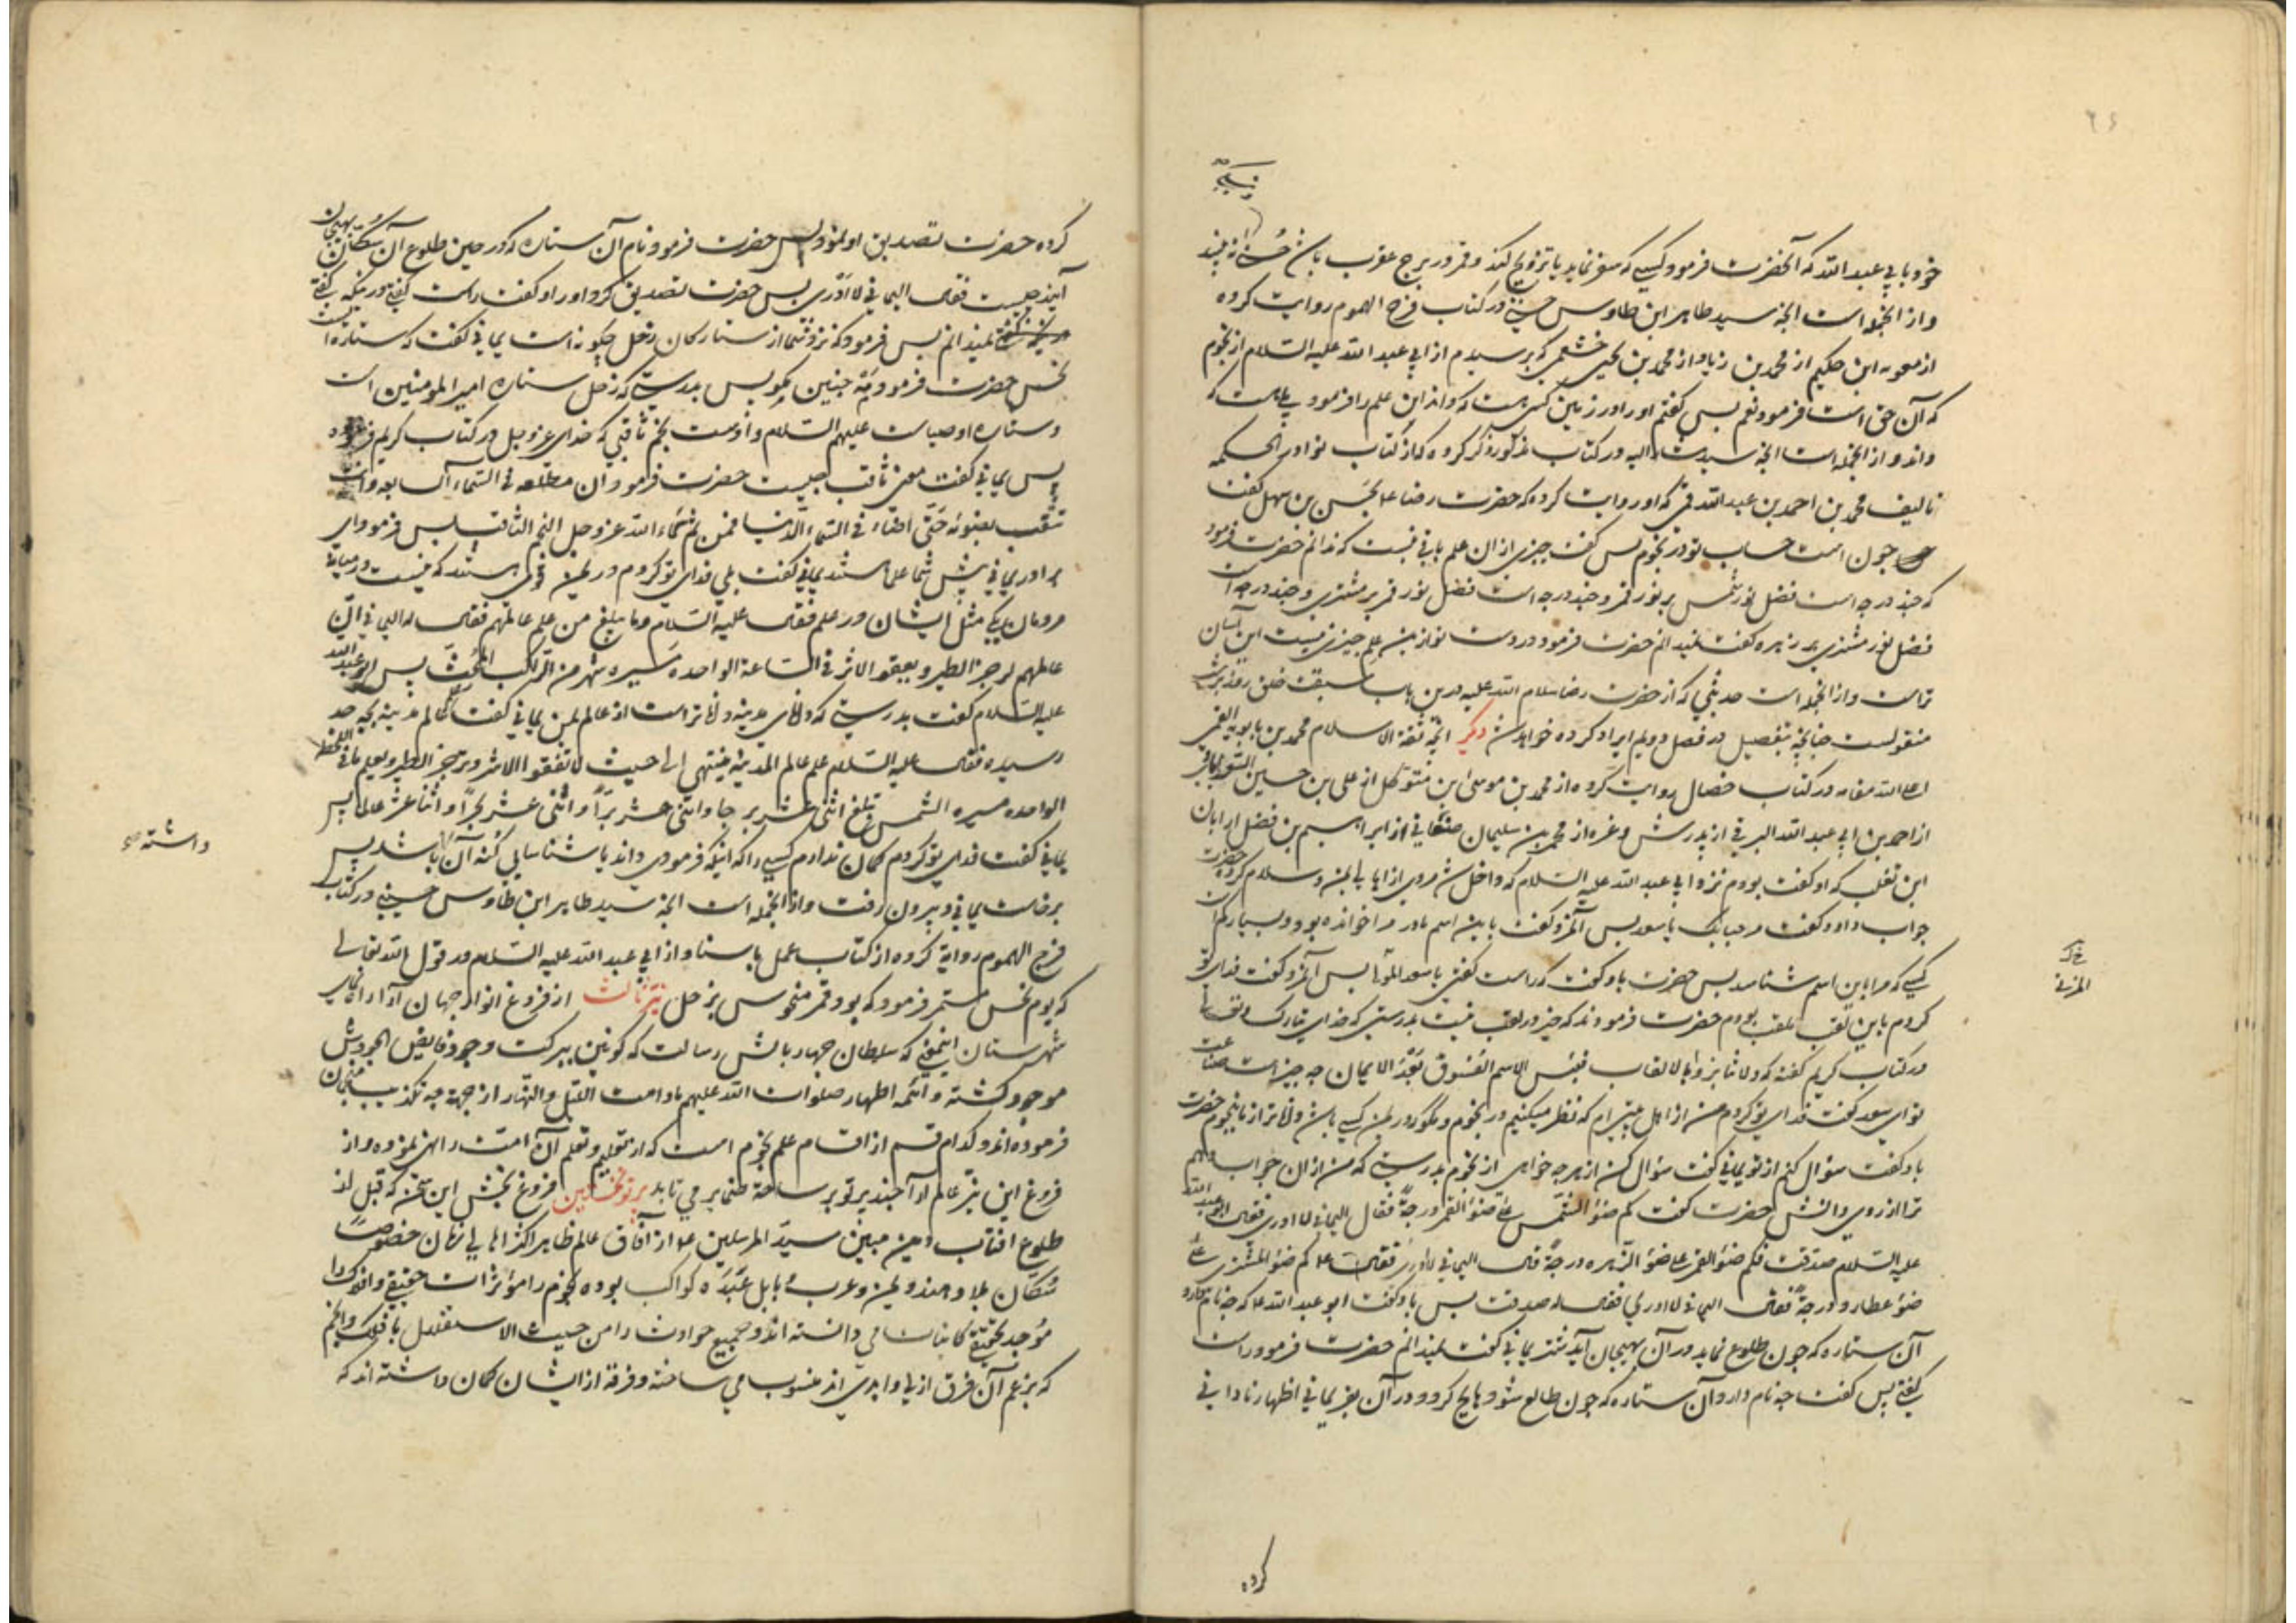 خود بابی عبد الله که آنحضرت فرمود کسی که سفر نماید یا تزویج کند و قمر در برج عقرب باشد حسنی نه بیند
و از آنجمله است آنچه سید طاهر ابن طاوس حسینی در کتاب فرج الهموم روایت کرده
از معویه ابن حکیم از محمد بن زیاد از محمد بن یحیی خثعمی که پرسیدم از ابی عبد الله علیه السلام از نجوم
که آن حق است فرمود نعم پس گفتم او را در زمین کسی هست که داند این علم را فرمود بلی هست که
داند و از آنجمله است آنچه سید در کتاب مذکور ذکر کرده که از کتاب نوادر الحکمه
تالیف محمد بن احمد بن عبد الله قمی که او روایت کرده که حضرت رضا ع بحسن بن سهل گفت
چون است حساب تو در نجوم پس گفت چیزی از ان علم باقی نیست که ندانم حضرت فرمود
که چند درجه است فضل نور شمس بر نور قمر و چند درجه است فضل نور قمر بر مشتری و چند درجه است
فضل نور مشتری بر زهره گفت نمیدانم حضرت فرمود در دست تو از این علم چیزی نیست این آسان
تر است و از آنجمله است حدیثی که از حضرت رضا سلام الله علیه درین باب
منقولست چنانچه بتفصیل در فصل دویم ایراد کرده خواهد شد دیگر آنچه ثقة الاسلام محمد بن بابویه القمی
اعلی الله مقامه در کتاب خصال روایت کرده از محمد بن موسی ابن متوکل از علی بن حسین السعدآبادی
از احمد بن ابی عبد الله البرقی از پدرش و غیره از محمد بن سلیمان صنعانی از ابراهیم بن فضل از ابان
ابن تغلب که او گفت بودم نزد ابی عبد الله علیه السلام که داخل شد مردی از اهالی یمن و سلام کرد حضرت
جواب داد و گفت مرحبا بک یا سعد پس آنمرد گفت باین اسم مادر مرا خوانده بود و بسیار کم است
کسی که مرا باین اسم شناسد پس حضرت باو گفت که راست گفتی یا سعد المولی پس آنمرد گفت فدای تو
کردم باین لقب ملقب بودم حضرت فرمودند که خیر در لقب نیست بدرستی که خدای تبارک و تعالی
در کتاب کریم گفته که ولا تنابزوا بالالقاب بئس الاسم الفسوق بعد الایمان چه چیز است صناعت
تو ای سعد گفت فدای تو کردم من از اهل بیتی ام که نظر میکنیم در نجوم و نگویند در یمن کسی باشد داناتر از ما بنجوم حضرت
باو گفت سؤال کنم از تو یمانی گفت سؤال کن از هر چه خواهی از نجوم بدرستی که من از ان جواب دهم
ترا از روی دانش حضرت گفت کم ضوء الشمس علی ضوء القمر درجة فقال الیمانی لا ادری فقال ابو عبد الله
علیه السلام صدقت فکم ضوء القمر علی ضوء الزهره درجة قال الیمانی لا ادری فقال ع کم ضوء المشتری علی
ضوء عطارد درجة فقال الیمانی لا ادری فقال له صدقت پس باو گفت ابو عبد الله ع که چه نام دارد
آن ستاره که چون طلوع نماید در آن بهیجان آید شتر یمانی گفت نمیدانم حضرت فرمود راست
گفتی پس گفت چه نام دارد آن ستاره که چون طالع شود هایج گردد در آن بقر یمانی اظهار نادانی
کرده
المزنی
کرده حضرت تصدیق او نمود پس حضرت فرمود نام آن ستاره که در حین طلوع آن سگان بهیجان
آیند چیست فقال الیمانی لا ادری پس حضرت تصدیق کرد او را و گفت راست گفتی در اینکه گفتی
نمیدانم پس فرمود که نزد شما از ستارکان زحل چگونه است یمانی گفت که ستاره است
نحس حضرت فرمود مه چنین مگو پس بدرستی که زحل ستاره امیر المومنین است
و ستاره اوصیاست علیهم السلام و اوست نجم ثاقبی که خدای عزوجل در کتاب کریم فرمود
پس یمانی گفت معنی ثاقب چیست حضرت فرمود ان مطلعه فی السماء السابعه وانه
ثقب بضوئه حتی اضاء فی السماء الدنیا فمن ثم سماه الله عزوجل النجم الثاقب پس فرمود ای
برادر یمانی پیش شما علما هستند یمانی گفت بلی فدای تو کردم در یمن قومی هستند که نیست در میانه
مردمان یکی مثل ایشان در علم فقال علیه السلام وما یبلغ من علم عالمهم فقال له الیمانی ان
عالمهم لیزجر الطیر و یقفو الاثر فی الساعة الواحده مسیره شهر من الراکب المحث پس ابو عبد الله
علیه السلام گفت بدرستی که دانای مدینه داناتر است از عالم یمن یمانی گفت علم عالم مدینه بچه حد
رسیده فقال علیه السلام علم عالم المدینة ینتهی الی حیث لا تقفوا الاثر و تزجر الطیر و یعلم ما فی اللحظة
الواحده مسیره الشمس تبلغ اثنی عشر برجا و اثنی عشر برا و اثنی عشر بحرا و اثنا عشر عالما پس
یمانی گفت فدای تو کردم گمان ندارم کسی را که اینکه فرمودی داند یا شناسای کنه آن باشد پس
برخاست یمانی و بیرون رفت و از آنجمله است آنچه سید طاهر ابن طاوس حسینی در کتاب
فرج الهموم روایة کرده از کتاب عمل باسناد از ابی عبد الله علیه السلام در قول الله تعالی
که یوم نحس مستمر فرمود که بود قمر منحوس بزحل نیر ثالث از فروغ انوار جهان آرا
شهرستان اینمعنی که سلطان چهار بالش رسالت که کونین ببرکت وجود فایض الجودش
موجود گشته و ائمه اطهار صلوات الله علیهم مادامت اللیل والنهار از جهة چه تکذیب منجمان
فرموده اند و کدام قسم از اقسام علم نجوم است که از تعلیم و تعلم آن امت را نهی نموده و از
فروغ این نیر عالم آرا چند پرتو بر ساحة ضمایر می تابد پرتو نخستین فروغ بخش این سخن که قبل از
طلوع افتاب دین مبین سید المرسلین ع از آفاق عالم ظاهر اکثر اهالی زمان خصوصا
سکان بلاد هند و یمن و عرب و بابل عبده کواکب بوده نجوم را مؤثرات حقیقی و افلاک را
موجد بتحقیق کاینات می دانسته اند و جمیع حوادث را من حیث الاستقلال بافلاک و انجم
که بزعم آن فرق ازلی و ابدی اند منسوب می ساخته و فرقه از ایشان گمان داشته اند که
داشته